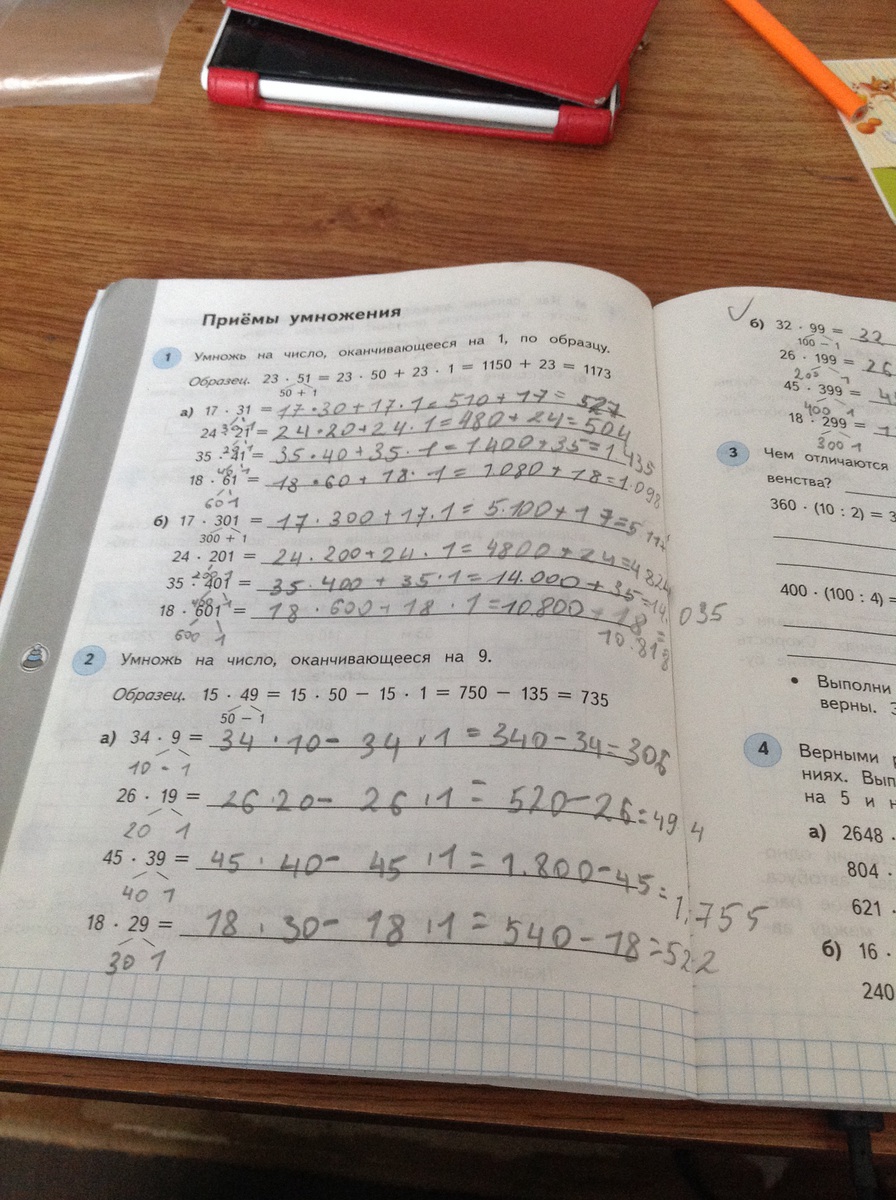 Приёмы умножения
1 Умножь на число, оканчивающееся на 1, по образцу.
Образец. 23 · 51 = 23 · 50 + 23 · 1 = 1150 + 23 = 1173
50 + 1
а) 17 · 31 = 17·30+17·1=510+17=527
30 1
24 · 21 = 24·20+24·1=480+24=504
20 1
35 · 41 = 35·40+35·1=1400+35=1435
40 1
18 · 61 = 18·60+18·1=1.080+18=1.098
60 1
б) 17 · 301 = 17·300+17·1=5.100+17=5117
300 + 1
24 · 201 = 24·200+24·1=4800+24=4824
200 1
35 · 401 = 35·400+35·1=14.000+35=14.035
400 1
18 · 601 = 18·600+18·1=10.800+18=
10.818
600 1
2 Умножь на число, оканчивающееся на 9.
Образец. 15 · 49 = 15 · 50 − 15 · 1 = 750 − 135 = 735
50 − 1
а) 34 · 9 = 34·10−34·1=340−34=306
10 - 1
26 · 19 = 26·20−26·1=520−26=494
20 1
45 · 39 = 45·40−45·1=1.800−45=1.755
40 1
18 · 29 = 18·30−18·1=540−18=522
30 1
б) 32 · 99 = 32
100 − 1
26 · 199 = 26
200 1
45 · 399 =
400 1
18 · 299 =
300 1
3 Чем отличаются
венства?
360 · (10 : 2) = 3
400 · (100 : 4) =
• Выполни
верны. З
4 Верными р
ниях. Вып
на 5 и н
а) 2648 ·
804 ·
621 ·
б) 16 ·
240